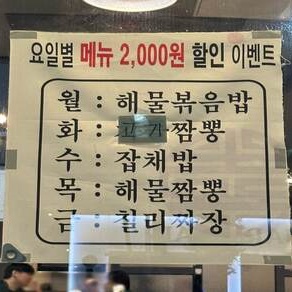 요일별 메뉴 2,000원 할인 이벤트
월 : 해물볶음밥
화 : 고기짬뽕
수 : 잡채밥
목 : 해물짬뽕
금 : 칠리짜장